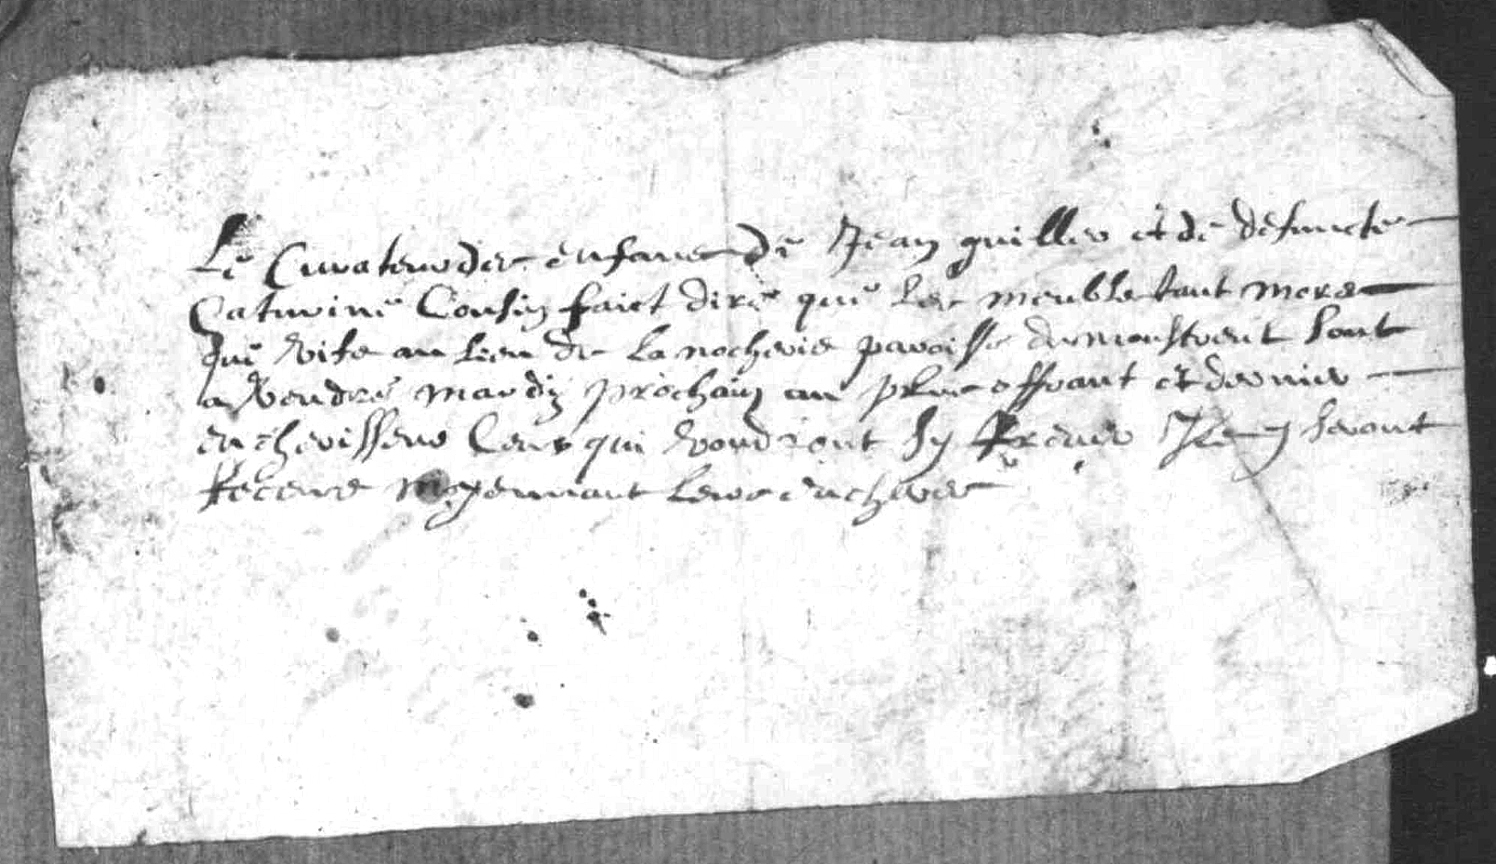 Le Curateur des enfans de Jean guiller et de defuncte
Caturine Cousin faict dire que les meuble tant mors
que vifs au lieu de la nocherie paroisse du monstreul sont
a vendre mardy prochain au plus offrant et dernier
encherisseur Ceux qui voudront sy trouver Ilz y seront
Receus moyennant leurs encheres